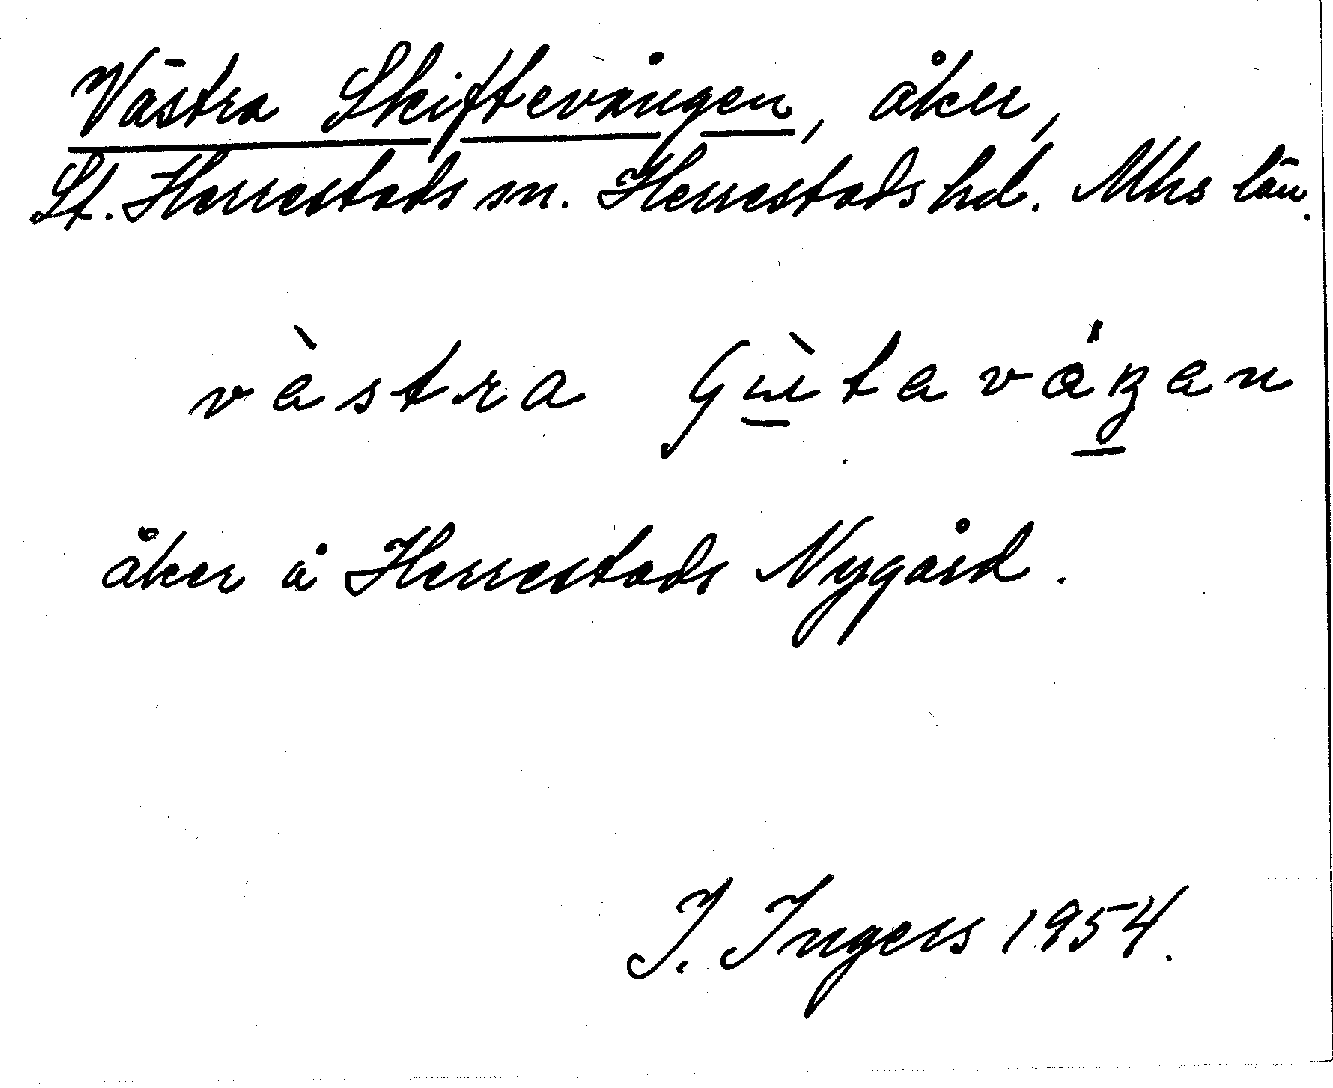 Västra Skiftevången, åker,
St. Herrestads sn. Herrestads hd. Mhs län.
västra
åker å Herrestads Nygård.
I. Ingers 1954.